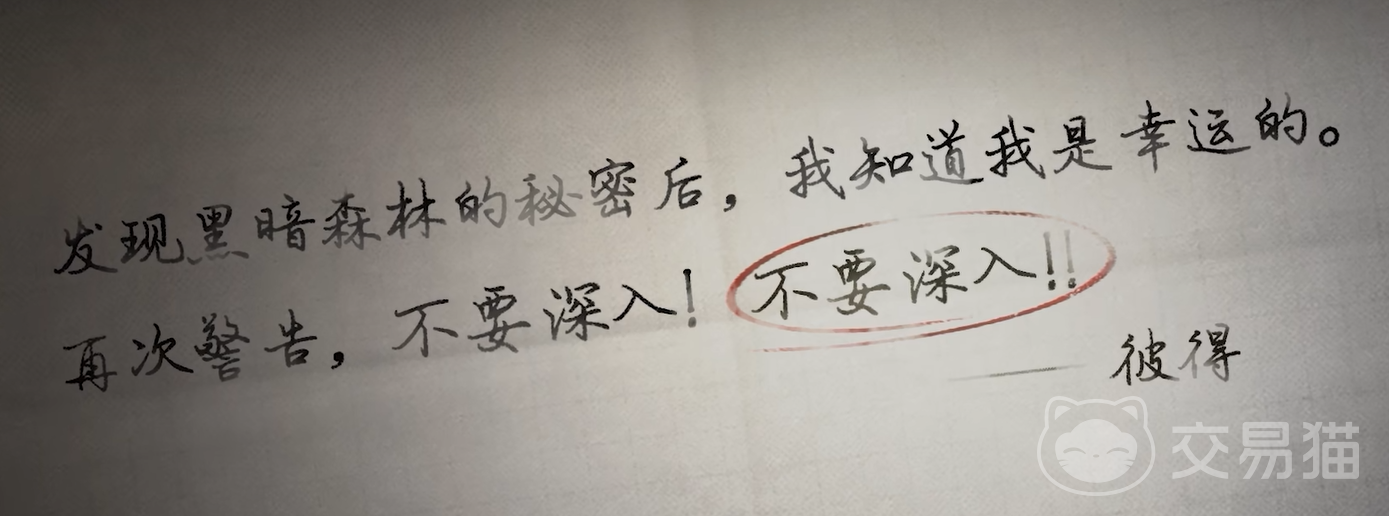 发现黑暗森林的秘密后，我知道我是幸运的。
再次警告，不要深入！不要深入！！
——彼得
交易猫